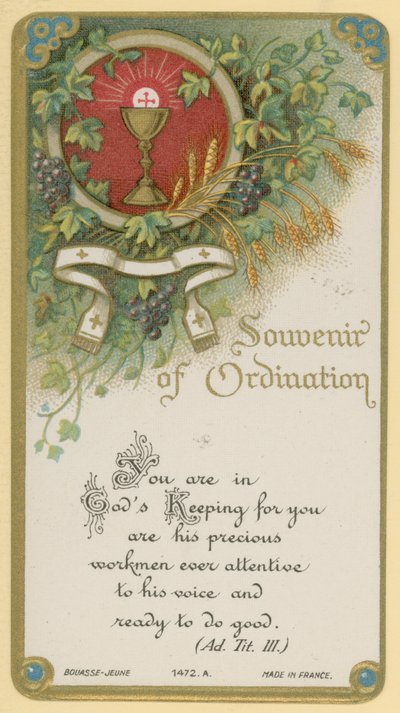 Souvenir
of Ordination
You are in
God's Keeping for you
are his precious
workmen ever attentive
to his voice and
ready to do good.
(Ad. Tit. III.)
BOUASSE-JEUNE 1472. A. MADE IN FRANCE.